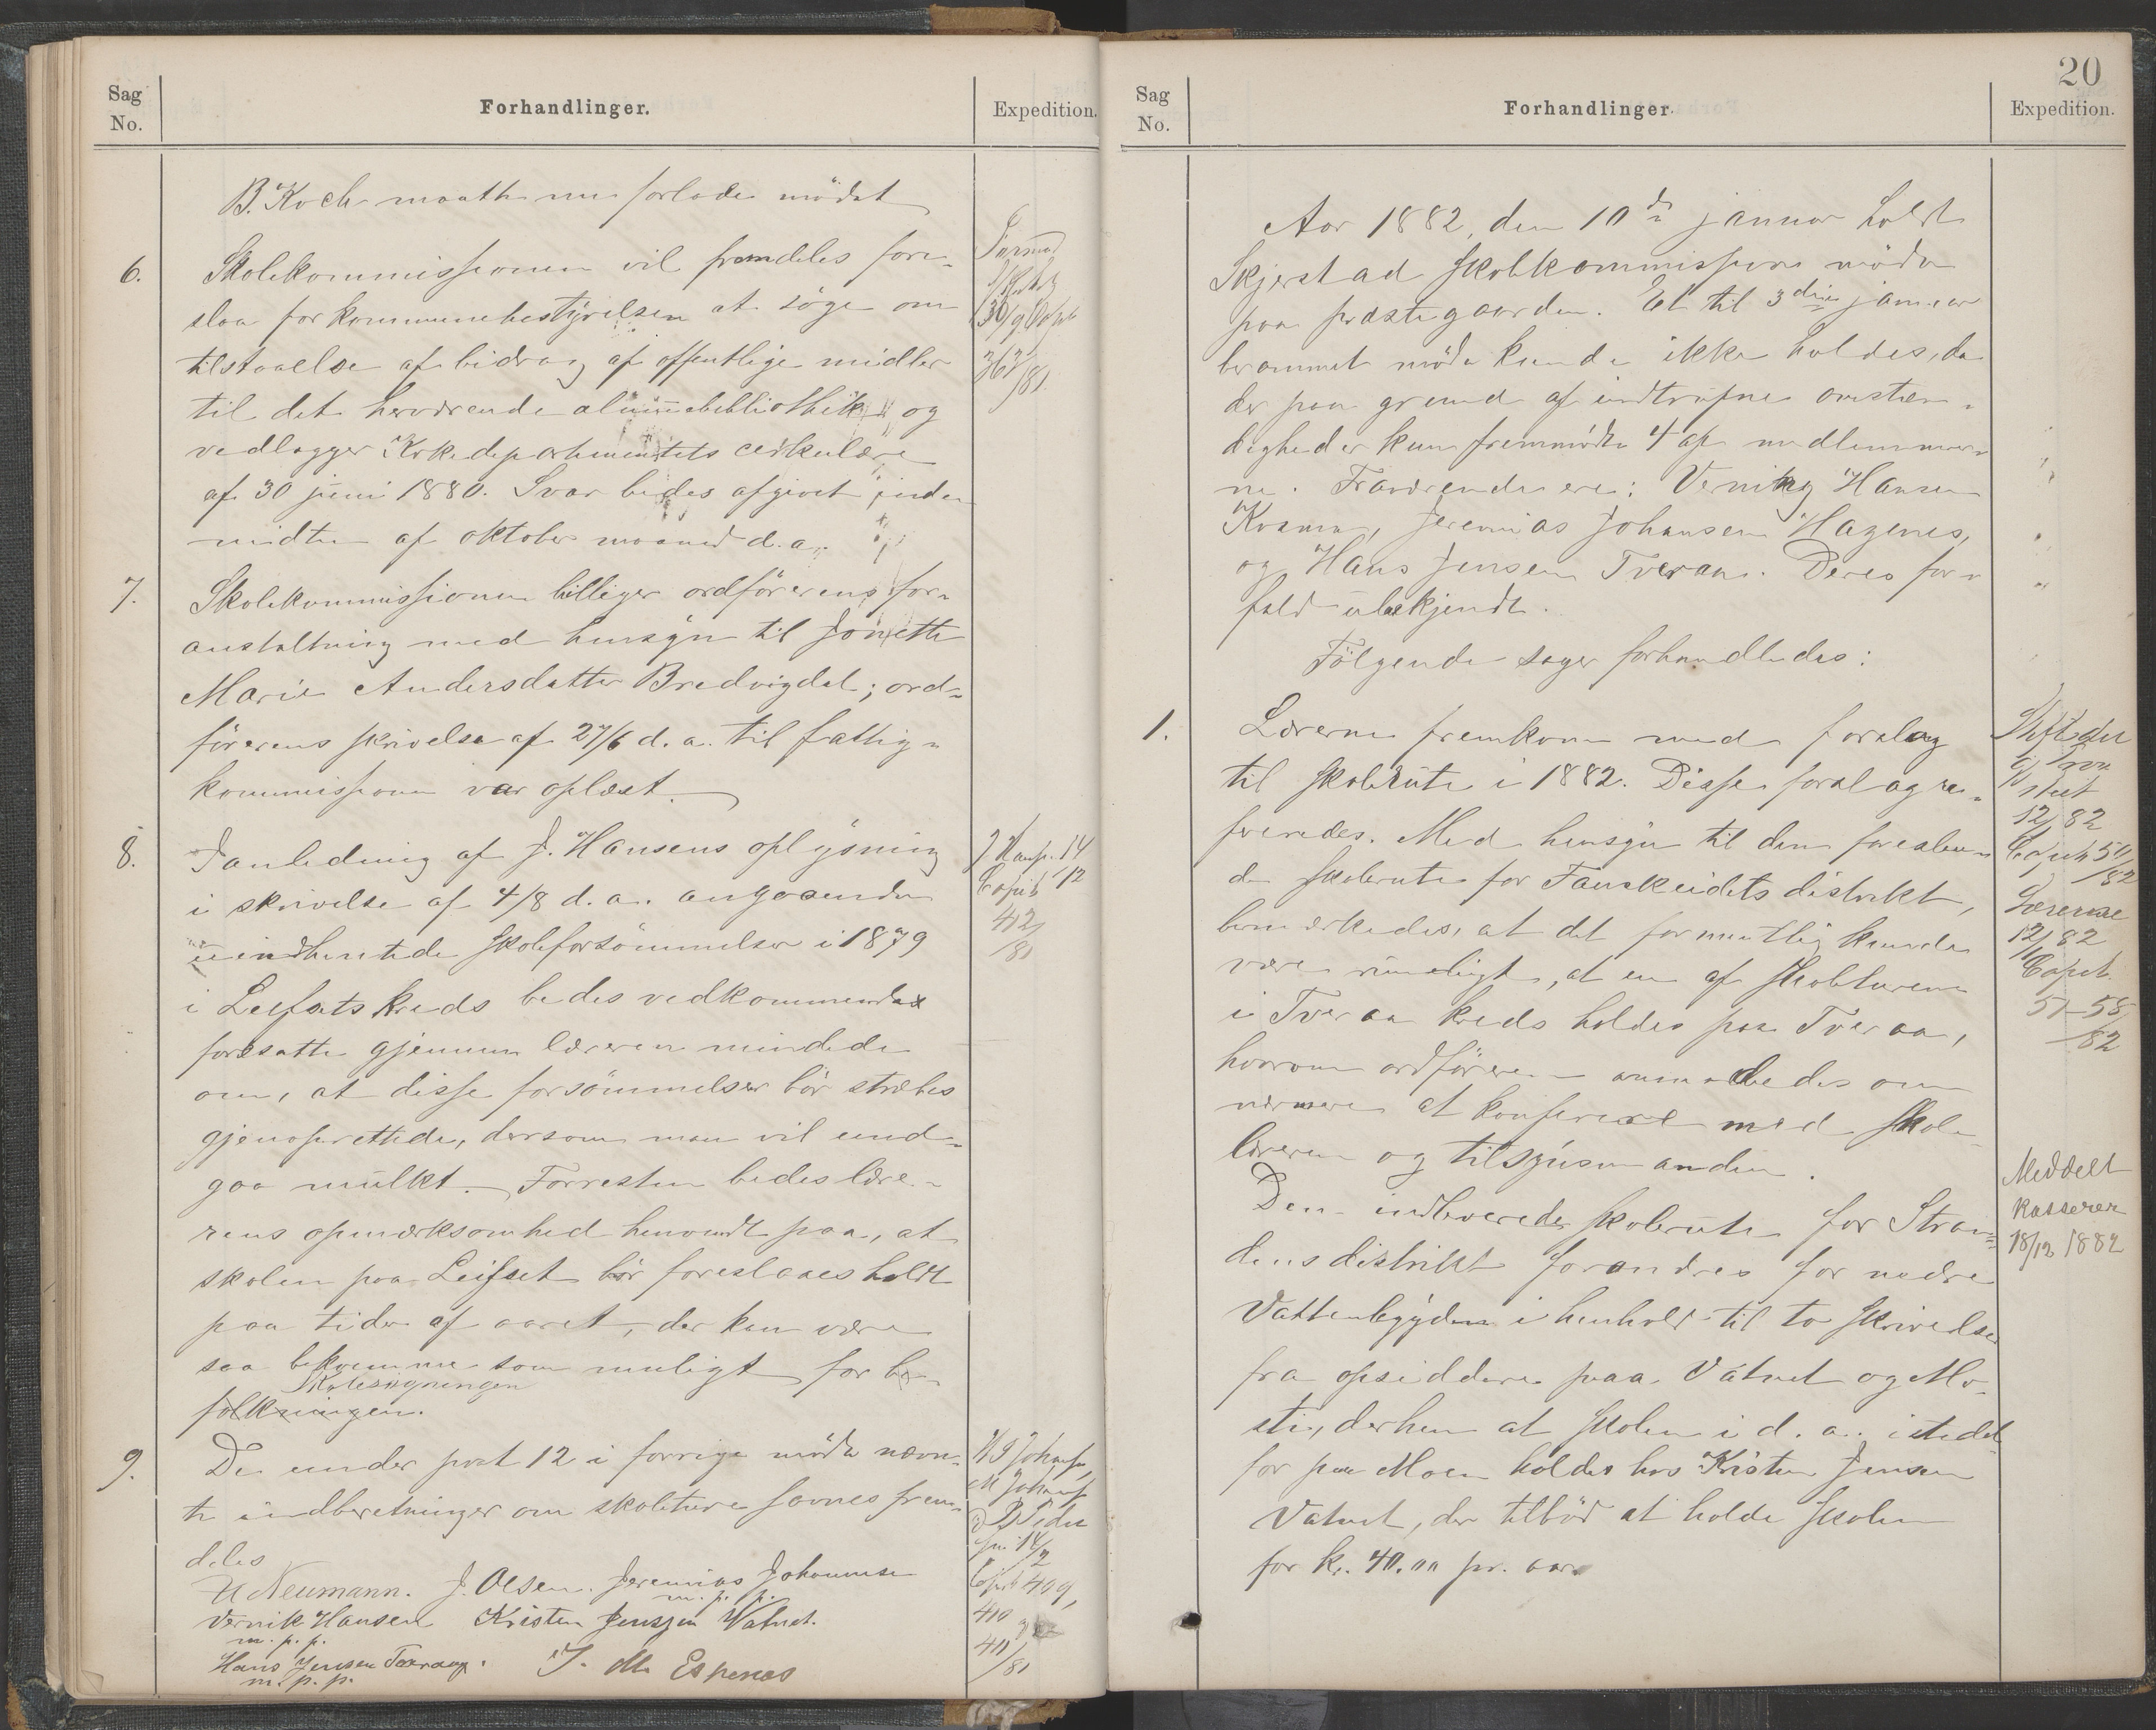 Sag
No.
Forhandlinger.
Expedition.
B. Koch maatte nu forlade mödet
6.
Skolekommissionen vil fremdeles fore-
slaa for kommunebestyrelsen at söge om
tilstaaelse af bidrag af offentlige midler
til det herværende almuebibliothek og
vedlægger Kirkedepartementets cirkulære
af 30 juni 1880. Svar bedes afgivet inden
midten af oktober maaned d. a.
30/9
363/81
7.
Skolekommissionen billiger ordförerens for-
anstaltning med hensyn til Jonette
Marie Andersdatter Bredvigdal; ord-
förerens skrivelse af 27/6 d. a. til fattig-
kommissionen var oplæst.
8.
I anledning af J. Hansens oplysning
i skrivelse af 4/8 d. a. angaaende
uindhentede skoleforsömmelser i 1879
i Leifsets kreds bedes vedkommende
foresatte gjennem læreren mindede
om, at disse forsömmelser bör stræbes
gjenoprettede, dersom man vil und-
gaa mulkt. Forresten bedes lære-
rens opmærksomhed henvendt paa, at
skolen paa Leifset bör foreslaaes holdt
paa tider af aaret, der kan være
saa bekvemme som muligt for be-
Skolesögningen
folkningen.
J Hans. 14
Copib 12
412
/81
9.
De under post 12 i forrige möde nævn-
te indberetninger om skoleture savnes frem-
deles
Copib 409,
410
411
/81
H Neumann. J. Olsen. Jeremias Johannesen
m. p. p.
Vernik Hansen Kristen Jenssen Vatnet.
m. p. p.
Hans Jensen Tveraa.
m. p. p.
J. M. Espenæs
20
Sag
No.
Forhandlinger.
Expedition.
Aar 1882, den 10de januar holdt
Skjerstad skolekommission möde
paa præstegaarden. Et til 3die januar
berammet möde kunde ikke holdes, da
der paa grund af indtrufne omstæn-
digheder kun fremmödte 4 af medlemmer-
ne. Fraværende ere: Vernik Hansen
Kvænn, Jeremias Johansen Hagenes,
og Hans Jensen Tveraa. Deres for-
fald ubekjendt.
Fölgende sager forhandledes:
1.
Lærerne fremkom med forslag
til skolerute i 1882. Disse forslag re-
fereredes. Med hensyn til den foreslaae-
de skolerute for Fauskeidets distrikt,
bemærkedes, at det formentlig kunde
være rimeligt, at en af skoleturene
i Tveraa kreds holdes paa Tveraa,
hvorom ordföreren anmodedes om
nærmere at konferere med skole-
læreren og tilsynsmanden.
Den indleverede skolerute for Stran-
dens distrikt forandres for nedre
Vattenbygden i henhold til to skrivelser
fra opsiddere paa Vatnet og Mo-
sti, derhen at skolen i d. a. istedet
for paa Moen holdes hos Kristen Jensen
Vatnet, der tilböd at holde skolen
for kr. 40.00 pr. aar.
12/1 82
Copib 50
/82
Lærerne
12/1 82
Copib
51-58
/82
Meddelt
kasserer
18/12 1882